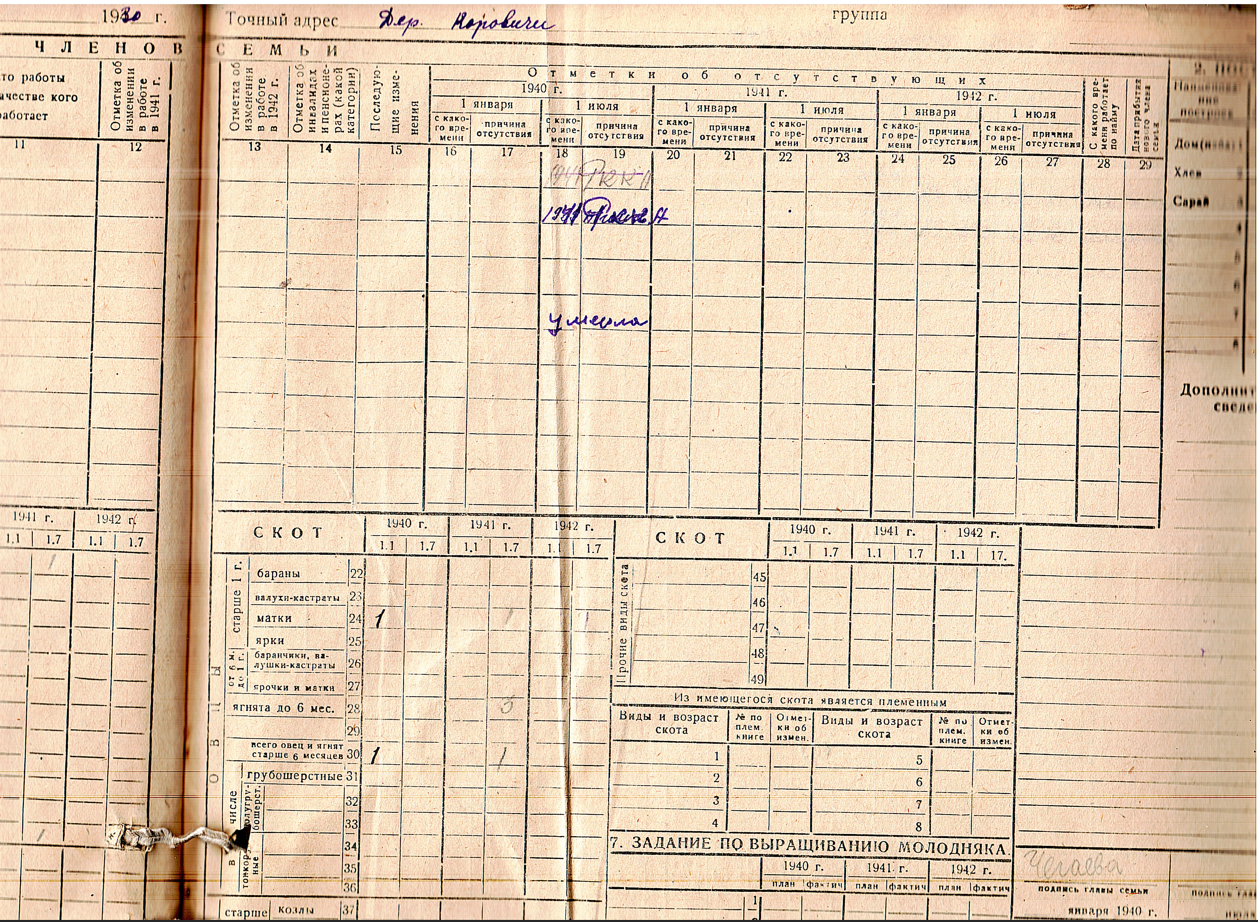 19 30 г. Точный адрес Дер. Норовичи группа
ЧЛЕНОВ СЕМЬИ
работы
качестве кого
работает
Отметка об изменении в работе в 1941 г.
Отметка об изменении в работе в 1942 г.
Отметка об инвалидах и пенсионерах (какой категории)
Последующие изменения
Отметки об отсутствующих
1940 г. 1941 г. 1942 г.
1 января 1 июля 1 января 1 июля 1 января 1 июля
с како-го вре-мени причина отсутствия с како-го вре-мени причина отсутствия с како-го вре-мени причина отсутствия с како-го вре-мени причина отсутствия с како-го вре-мени причина отсутствия с како-го вре-мени причина отсутствия
С какого вре-мени работает по найму
Дата прибытия нового члена семьи
11 12 13 14 15 16 17 18 19 20 21 22 23 24 25 26 27 28 29
1941 РККА
1941
умерла
Дом
Хлев
Сарай 3
4
5
6
7
8
1941 г. 1942 г.
1.1 1.7 1.1 1.7
1
1
СКОТ 1940 г. 1941 г. 1942 г.
1.1 1.7 1.1 1.7 1.1 1.7
старше 1 г.
бараны 22
валухи-кастраты 23
матки 24 1 1 1
ярки 25
от 6 м. до 1 г.
баранчики, ва-
лушки-кастраты 26
ярочки и матки 27
ягнята до 6 мес. 28 3
29
всего овец и ягнят
старше 6 месяцев 30 1 1
в числе
грубошерстные 31
32
33
34
35
36
старше козлы 37
СКОТ 1940 г. 1941 г. 1942 г.
1.1 1.7 1.1 1.7 1.1 17.
Прочие виды скота
45
46
47
48
49
Из имеющегося скота является племенным
Виды и возраст скота № по плем. книге Отмет-ки об измен. Виды и возраст скота № по плем. книге Отмет-ки об измен.
1 5
2 6
3 7
4 8
7. ЗАДАНИЕ ПО ВЫРАЩИВАНИЮ МОЛОДНЯКА
1940 г. 1941 г. 1942 г.
план фактич план фактич план фактич
1
подпись главы семьи
января 1940 г.